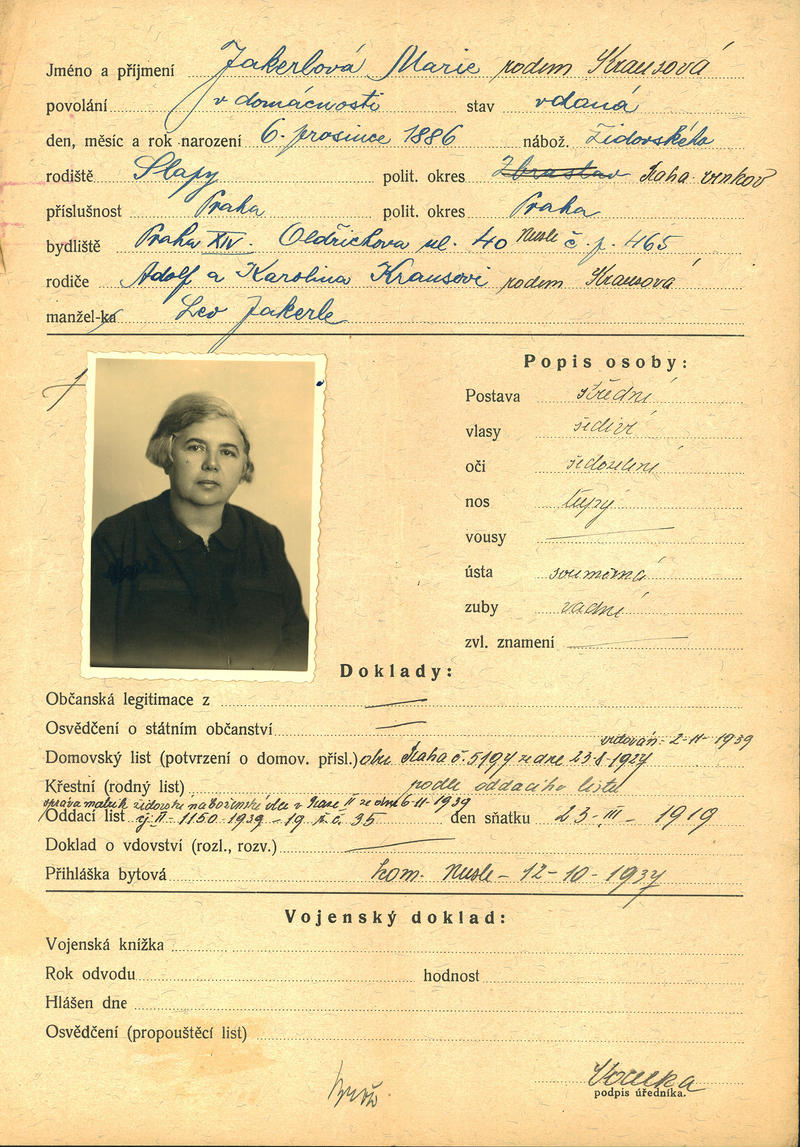 Jméno a příjmení Jakerlová Marie rodem Krausová
povolání v domácnosti stav vdaná
den, měsíc a rok narození 6. prosince 1886 nábož. židovského
rodiště Slapy polit. okres Zbraslav Praha venkov
příslušnost Praha polit. okres Praha
bydliště Praha XIV. Oldřichova ul. 40 Nusle č. p. 465
rodiče Adolf a Karolina Krausovi rodem Krausová
manžel-ka Leo Jakerle
Popis osoby:
Postava střední
vlasy šedivé
oči šedozelené
nos tupý
vousy
ústa souměrná
zuby vadné
zvl. znamení
Doklady:
Občanská legitimace z
Osvědčení o státním občanství
2-11-1939
Domovský list (potvrzení o domov. přísl.) obce Praha č. 5194 ze dne 23-8-1927
Křestní (rodný list) podle oddacího listu
správa matrik židovské náboženské obce v Praze II ze dne 6-11-1939
Oddací list čj II-1150-1939-19 ř. č. 35 den sňatku 23-III-1919
Doklad o vdovství (rozl., rozv.)
Přihláška bytová kom. Nusle - 12-10-1937
Vojenský doklad:
Vojenská knížka
Rok odvodu hodnost
Hlášen dne
Osvědčení (propouštěcí list)
podpis úředníka.